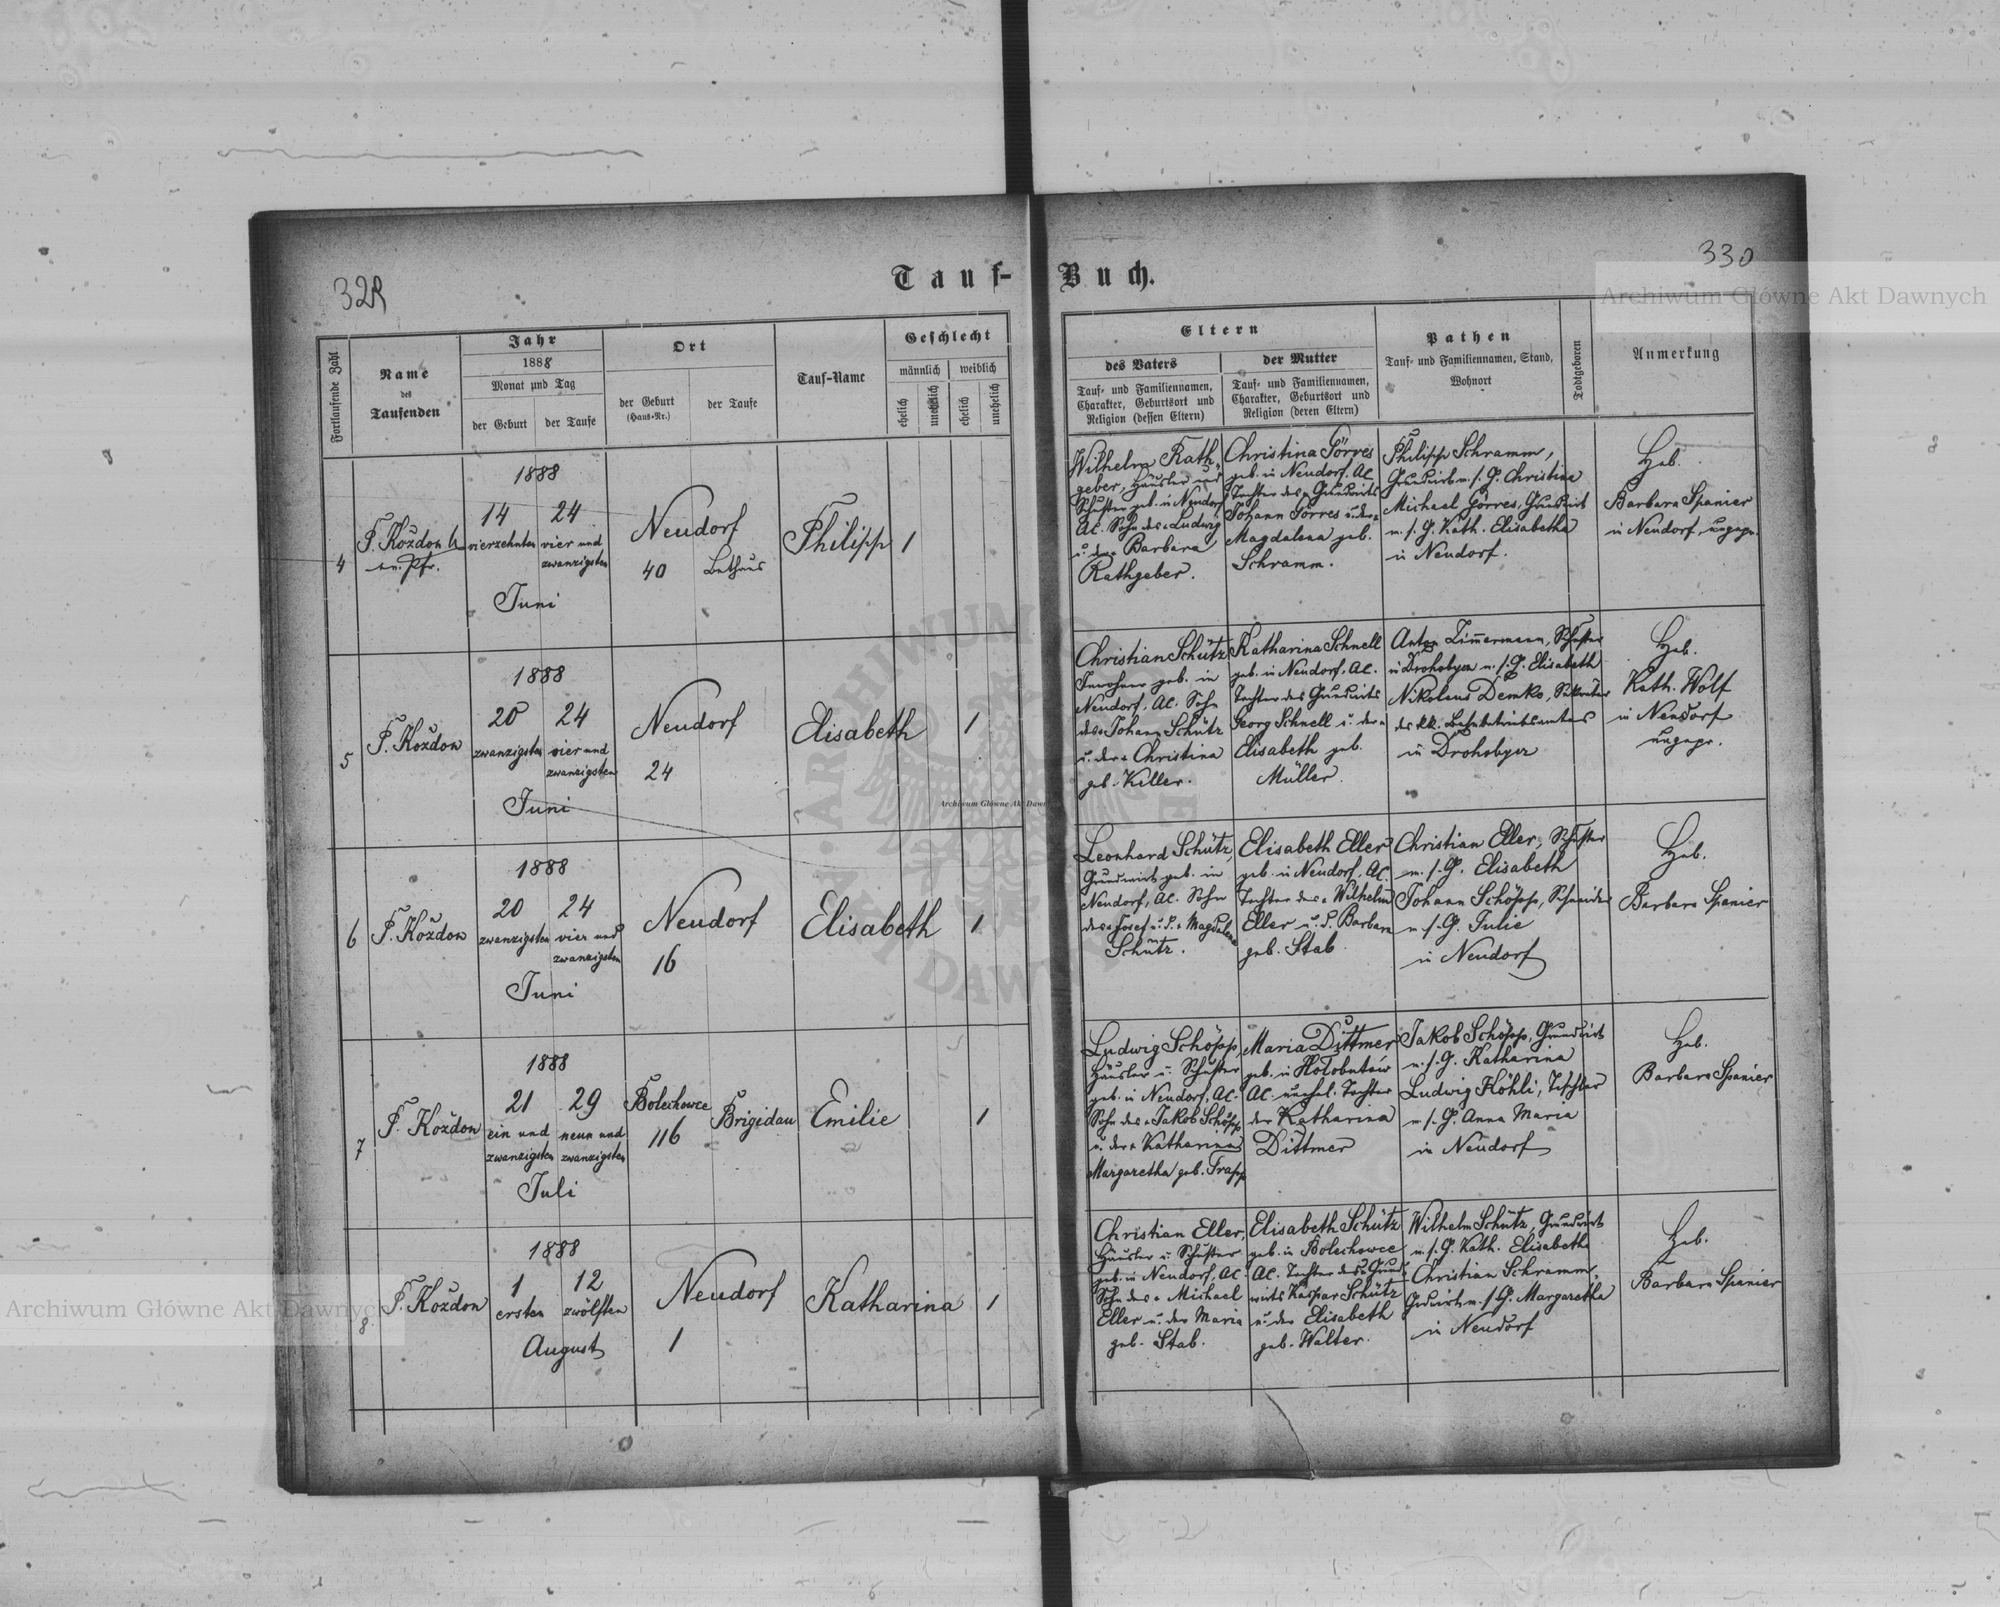 329
330
Tauf-Buch.
Fortlaufende Zahl
Name
des
Taufenden
Jahr
1888
Monat und Tag
der Geburt
der Taufe
Ort
der Geburt
(Haus-Nr.)
der Taufe
Tauf-Name
Geschlecht
männlich
weiblich
ehelich
unehelich
ehelich
unehelich
Eltern
des Vaters
Tauf- und Familiennamen,
Charakter, Geburtsort und
Religion (dessen Eltern)
der Mutter
Tauf- und Familiennamen,
Charakter, Geburtsort und
Religion (deren Eltern)
Pathen
Tauf- und Familiennamen, Stand,
Wohnort
Todtgeboren
Anmerkung
4
F. Koždon
ev. Pfr.
1888
14
vierzehnten
24
vier und
zwanzigsten
Juni
Neudorf
40
Bethaus
Philipp
1
Wilhelm Rath-
geber, Häusler und
Schuster geb. in Neudorf
AC. Sohn des Ludwig
u. der Barbara
Rathgeber.
Christina Görres
geb. in Neudorf, AC.
Tochter des Grundwirts
Johann Görres u. der
Magdalena geb.
Schramm.
Philipp Schramm,
Grundwirt m. s. G. Christina
Michael Görres, Grundwirt
m. s. G. Kath. Elisabetha
in Neudorf.
Heb.
Barbara Spanier
in Neudorf, ungepr.
5
F. Koždon
1888
20
zwanzigsten
24
vier und
zwanzigsten
Juni
Neudorf
24
Elisabeth
1
Christian Schütz
Inwohner geb. in
Neudorf, AC. Sohn
des Johann Schütz
u. der Christina
geb. Keller.
Katharina Schnell
geb. in Neudorf, AC.
Tochter des Grundwirts
Georg Schnell u. der
Elisabeth geb.
Müller.
Anton Zimmermann, Schuster
in Drohobycz m. s. G. Elisabeth
Nikolaus Demko, Sekretär
des kk. Bahnbetriebsamtes
in Drohobycz
Heb.
Kath. Wolf
in Neudorf
ungepr.
6
F. Koždon
1888
20
zwanzigsten
24
vier und
zwanzigsten
Juni
Neudorf
16
Elisabeth
1
Leonhard Schütz,
Grundwirt geb. in
Neudorf, AC. Sohn
des Josef u. d. Magdalena
Schütz.
Elisabeth Eller
geb. in Neudorf, AC.
Tochter des Wilhelm
Eller u. d. Barbara
geb. Stab.
Christian Eller, Schuster
m. s. G. Elisabeth
Johann Schöpp, Schneider
m. s. G. Julie
in Neudorf
Heb.
Barbara Spanier
7
F. Koždon
1888
21
ein und
zwanzigsten
29
neun und
zwanzigsten
Juli
Bolechowce
116
Brigidau
Emilie
1
Ludwig Schöpp,
Häusler u. Schuster
geb. in Neudorf, AC.
Sohn des Jakob Schöpp
u. der Katharina
Margaretha geb. Trapp
Maria Dittmer
geb. in Hołobutów
AC. unehel. Tochter
der Katharina
Dittmer
Jakob Schöpp, Grundwirt
m. s. G. Katharina
Ludwig Köhli, Tischler
m. s. G. Anna Maria
in Neudorf
Heb.
Barbara Spanier
8
F. Koždon
1888
1
ersten
12
zwölften
August
Neudorf
1
Katharina
1
Christian Eller,
Häusler u. Schuster
geb. in Neudorf, AC.
Sohn des Michael
Eller u. der Maria
geb. Stab.
Elisabeth Schütz
geb. in Bolechowce
AC. Tochter des Grund-
wirts Kaspar Schütz
u. der Elisabeth
geb. Walter.
Wilhelm Schütz, Grundwirt
m. s. G. Kath. Elisabetha
Christian Schramm,
Grdwirt m. s. G. Margaretha
in Neudorf
Heb.
Barbara Spanier
Archiwum Główne Akt Dawnych
Archiwum Główne Akt Dawnych
Archiwum Główne Akt Dawnych